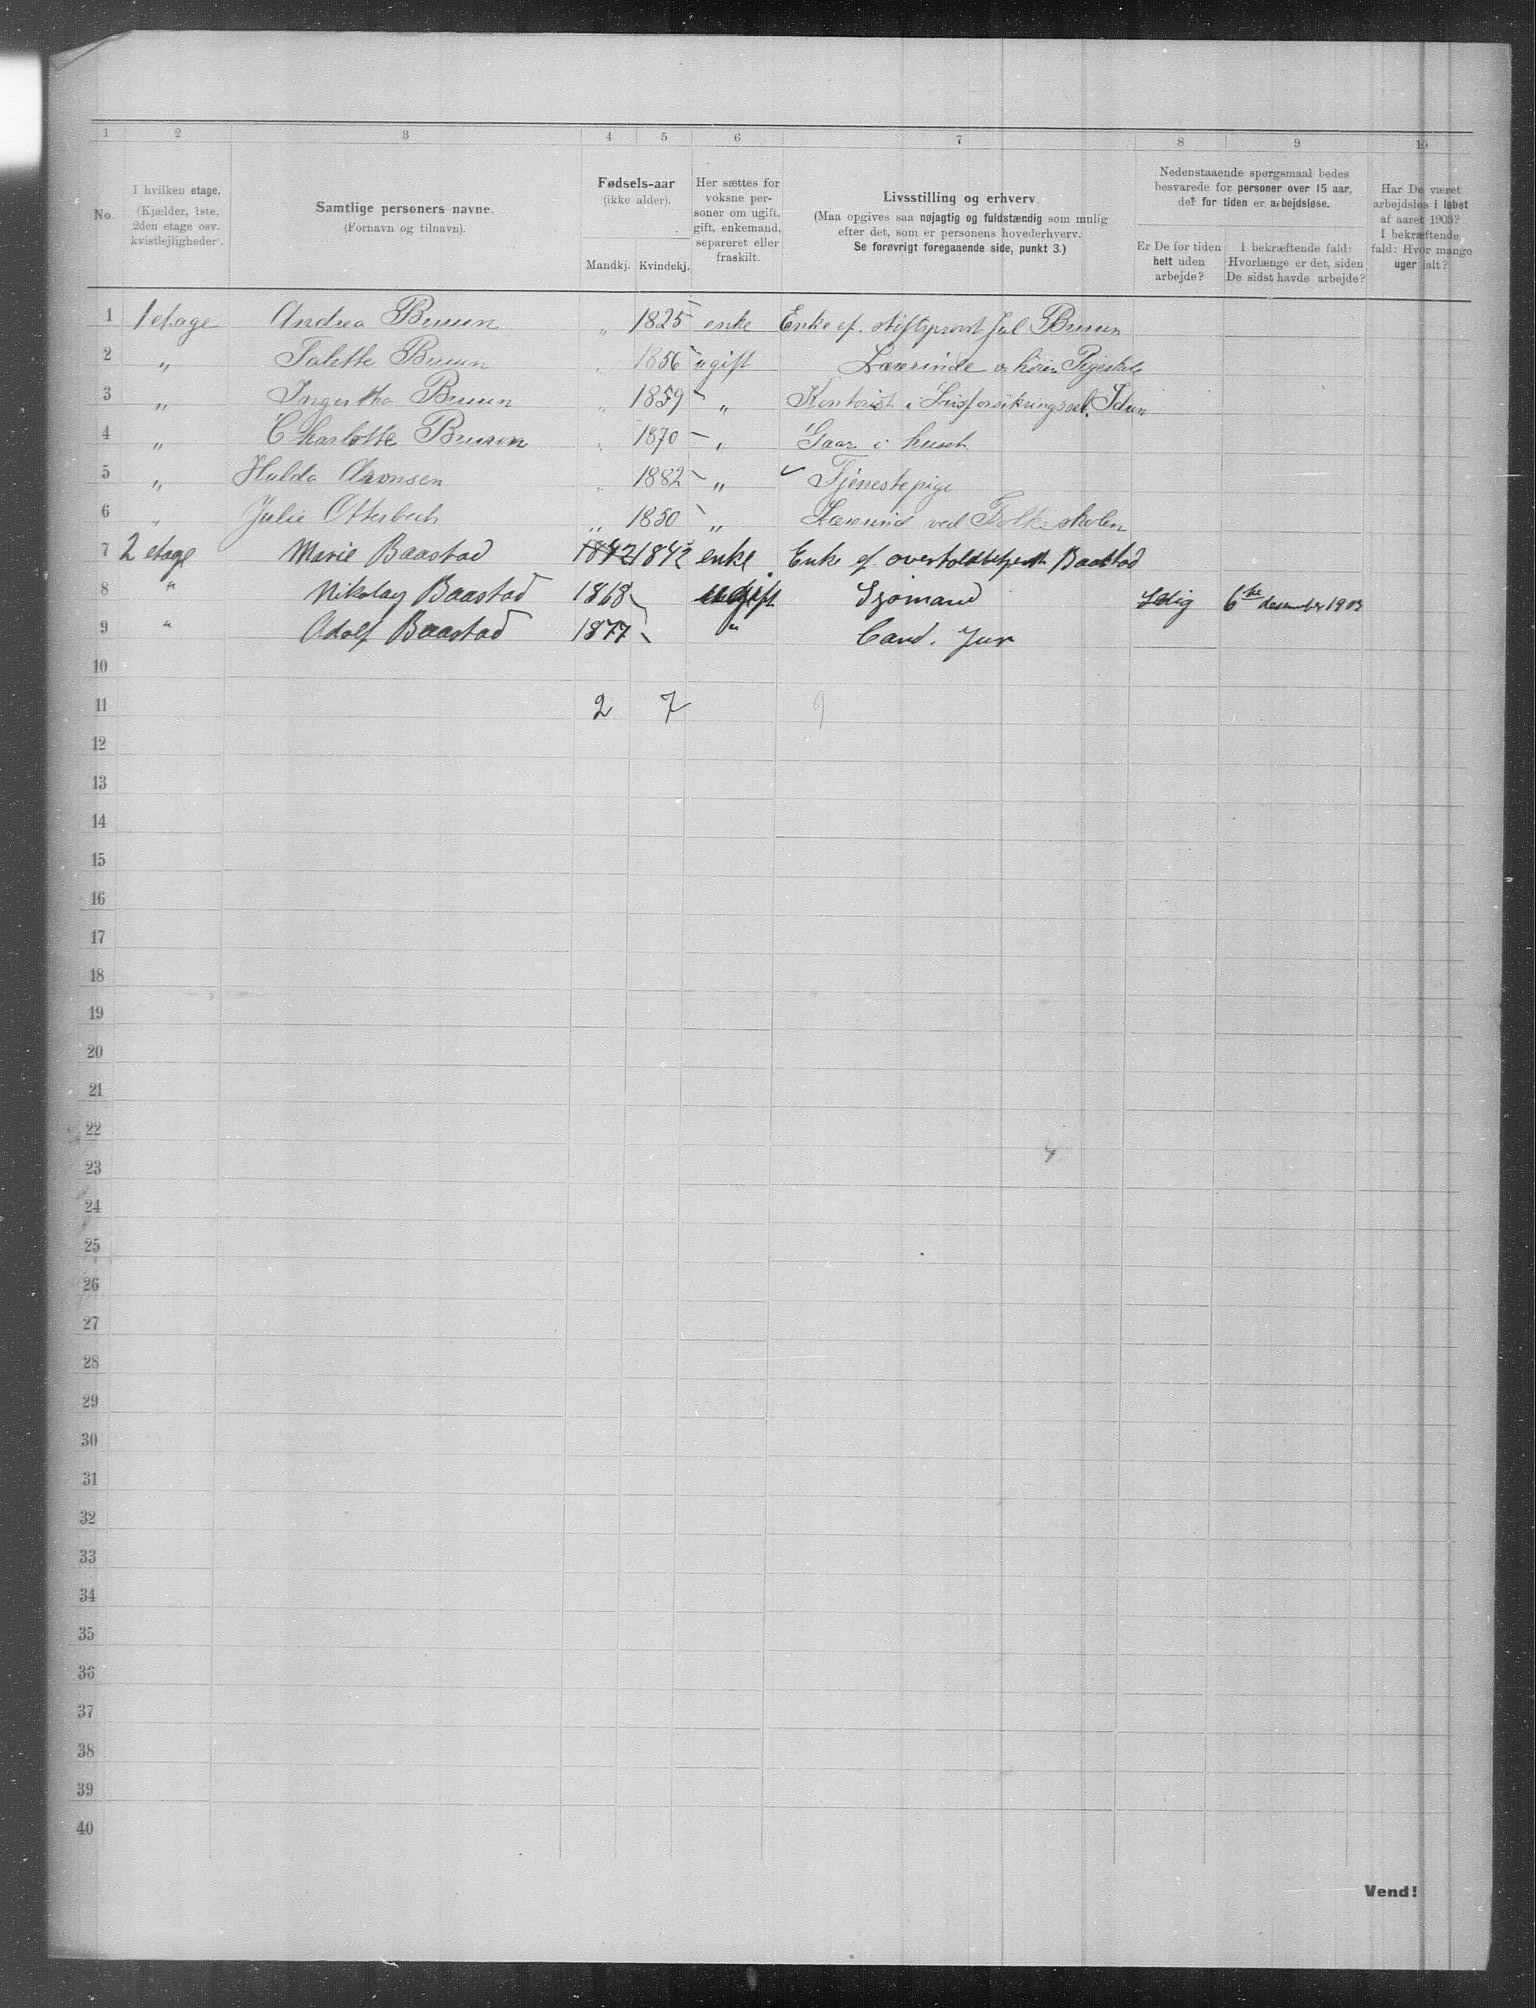 1 2 3 4 5 6 7 8 9 10
No.
I hvilken etage.
(Kjælder, 1ste,
2den etage osv.
kvistlejligheder).
Samtlige personers navne.
(Fornavn og tilnavn).
Fødsels-aar
(ikke alder).
Mandkj. Kvindekj.
Her sættes for
voksne per-
soner om ugift,
gift, enkemand,
separeret eller
fraskilt.
Livsstilling og erhverv.
(Maa opgives saa nøjagtig og fuldstændig som mulig
efter det, som er personens hovederhverv.
Se forøvrigt foregaaende side, punkt 3.)
Nedenstaaende spørgsmaal bedes
besvarede for personer over 15 aar,
der for tiden er arbejdsløse.
Er De for tiden
helt uden
arbejde?
I bekræftende fald:
Hvorlænge er det, siden
De sidst havde arbejde?
Har De været
arbejdsløs i løbet
af aaret 1903?
I bekræftende
fald: Hvor mange
uger ialt?
1 1 etage Andrea Bruun „ 1825 enke Enke ef. stiftsprovst Jul Bruun
2 „ Talette Bruun „ 1856 ugift Lærerinde v. høiere Pigeskole
3 „ Ingertha Bruun „ 1859 „ Kontorist i Livsforsikringssel. Idun
4 „ Charlotte Bruun „ 1870 „ Gaar i huset
5 „ Hulda Aronsen „ 1882 „ Tjenestepige
6 „ Julie Otterbech „ 1850 „ Lærerind ved Folkeskolen
7 2 etage Marie Baastad 1842 1842 enke. Enke ef overtoldbetjent Baastad
8 " Nikolay Baastad 1868 ugift Sjømand Ledig 6te desember 1903
9 " Adolf Baastad 1877 " Cand. Jur
10
11 2 7 9
12
13
14
15
16
17
18
19
20
21
22
23
24
25
26
27
28
29
30
31
32
33
34
35
36
37
38
39
40
Vend!